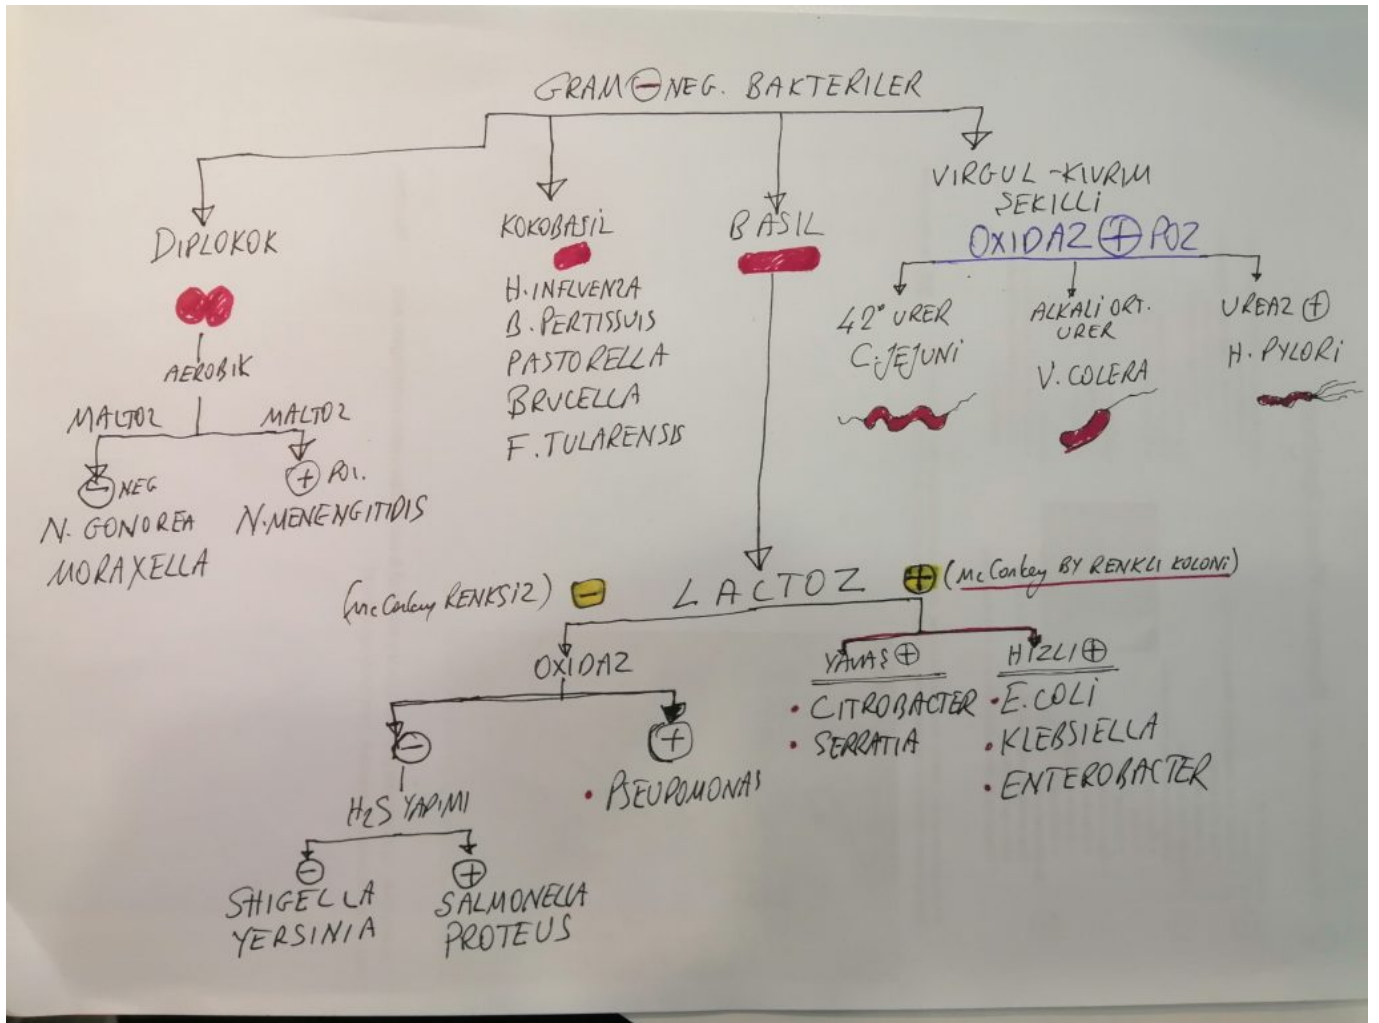 GRAM ⊖ NEG. BAKTERILER
DIPLOKOK
AEROBIK
MALTOZ
MALTOZ
⊖ NEG
N. GONOREA
MORAXELLA
⊕ POZ.
N. MENENGITIDIS
KOKOBASİL
H. INFLUENZA
B. PERTISSUIS
PASTORELLA
BRUCELLA
F. TULARENSIS
BASIL
VIRGUL - KIVRIM
ŞEKILLI
OXIDAZ ⊕ POZ
42° URER
C. JEJUNİ
ALKALİ ORT.
URER
V. COLERA
UREAZ ⊕
H. PYLORİ
(Mc Conkey RENKSİZ) - LACTOZ + (Mc Conkey BY RENKLI KOLONİ)
OXIDAZ
⊖
H2S YAPIMI
⊖
SHIGELLA
YERSINIA
⊕
SALMONELLA
PROTEUS
⊕
• PSEUDOMONAS
YAVAŞ ⊕
• CITROBACTER
• SERRATIA
HIZLI ⊕
• E. COLİ
• KLEBSIELLA
• ENTEROBACTER